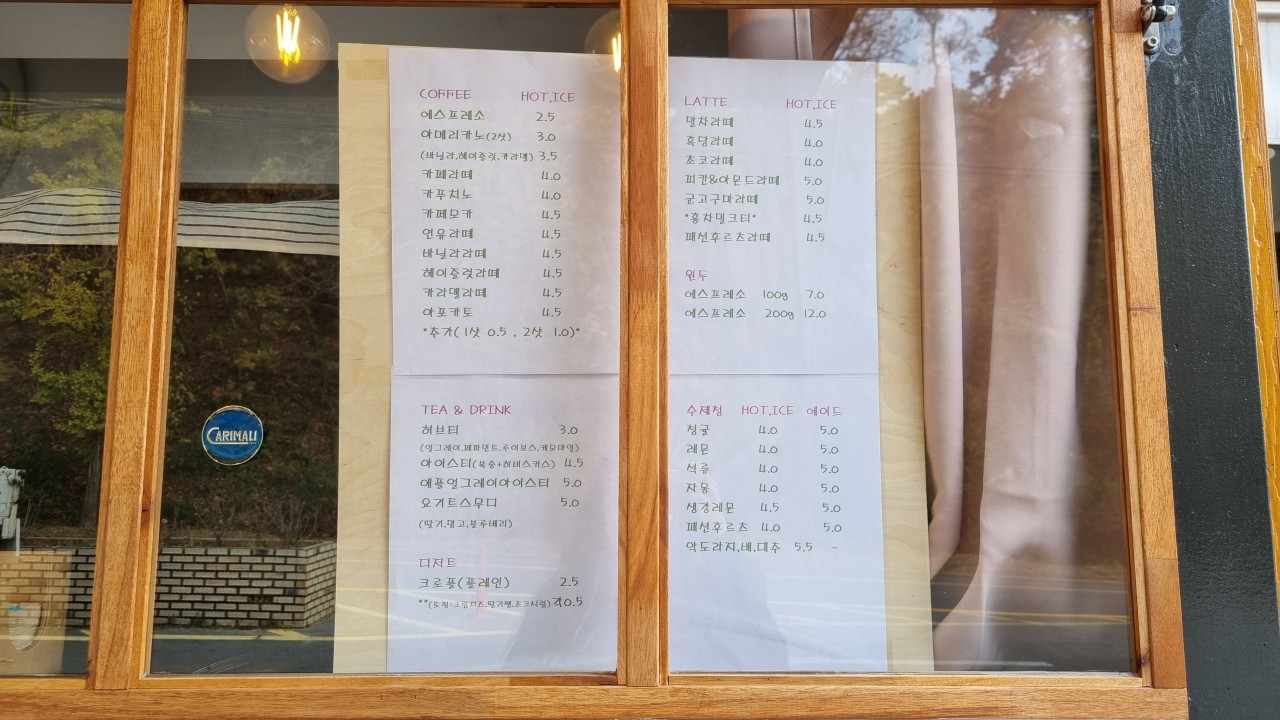 COFFEE HOT.ICE
에스프레소 2.5
아메리카노(2샷) 3.0
(바닐라.헤이즐럿.카라멜) 3.5
카페라떼 4.0
카푸치노 4.0
카페모카 4.5
연유라떼 4.5
바닐라라떼 4.5
헤이즐럿라떼 4.5
카라멜라떼 4.5
아포카토 4.5
*추가( 1샷 0.5 . 2샷 1.0)*
TEA & DRINK
허브티 3.0
(얼그레이.페퍼민트.루이보스.케모마일)
아이스티(복숭+히비스커스) 4.5
애플얼그레이아이스티 5.0
요거트스무디 5.0
(딸기.망고.블루베리)
디저트
크로플(플레인) 2.5
**(토핑-크림치즈.딸기쨈.초코시럽) 각0.5
LATTE HOT.ICE
말차라떼 4.5
흑당라떼 4.0
초코라떼 4.0
피칸&아몬드라떼 5.0
군고구마라떼 5.0
*홍차밀크티* 4.5
패션후르츠라떼 4.5
원두
에스프레소 100g 7.0
에스프레소 200g 12.0
수제청 HOT.ICE 에이드
청귤 4.0 5.0
레몬 4.0 5.0
석류 4.0 5.0
자몽 4.0 5.0
생강레몬 4.5 5.0
패션후르츠 4.0 5.0
약도라지.배.대추 5.5 -
CARIMALI